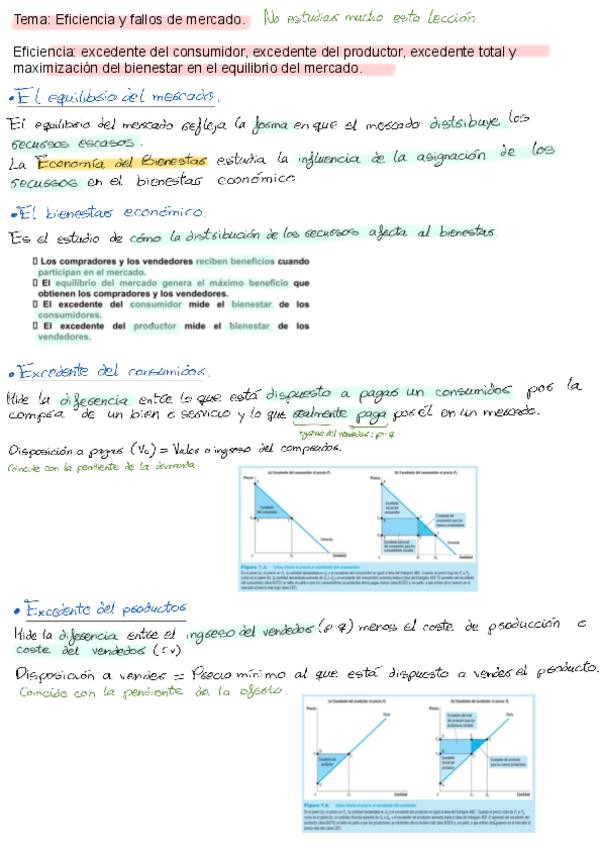 Tema: Eficiencia y fallos de mercado. No estudiar mucho esta lección
Eficiencia: excedente del consumidor, excedente del productor, excedente total y
maximización del bienestar en el equilibrio del mercado.
• El equilibrio del mercado.
El equilibrio del mercado refleja la forma en que el mercado distribuye los
recursos escasos.
La Economía del Bienestar estudia la influencia de la asignación de los
recursos en el bienestar económico
• El bienestar económico.
Es el estudio de cómo la distribución de los recursos afecta al bienestar.
Los compradores y los vendedores reciben beneficios cuando
participan en el mercado.
El equilibrio del mercado genera el máximo beneficio que
obtienen los compradores y los vendedores.
El excedente del consumidor mide el bienestar de los
consumidores.
El excedente del productor mide el bienestar de los
vendedores.
• Excedente del consumidor.
Mide la diferencia entre lo que está dispuesto a pagar un consumidor por la
compra de un bien o servicio y lo que realmente paga por él en un mercado.
ingreso del vendedor: p·q
Disposición a pagar (Vc) = Valor o ingreso del comprador.
Coincide con la pendiente de la demanda.
(a) Excedente del consumidor al precio P₁
(b) Excedente del consumidor al precio P₂
Precio
Precio
Demanda
Demanda
Cantidad
Cantidad
Figura 7.3. Cómo afecta el precio al excedente del consumidor.
• Excedente del productor
Mide la diferencia entre el ingreso del vendedor (p·q) menos el coste de producción o
coste del vendedor (cv)
Disposición a vender = Precio mínimo al que está dispuesto a vender el producto.
Coincide con la pendiente de la oferta.
(a) Excedente del productor al precio P₁
(b) Excedente del productor al precio P₂
Precio
Precio
Oferta
Oferta
Cantidad
Cantidad
Figura 7.6. Cómo afecta el precio al excedente del productor.